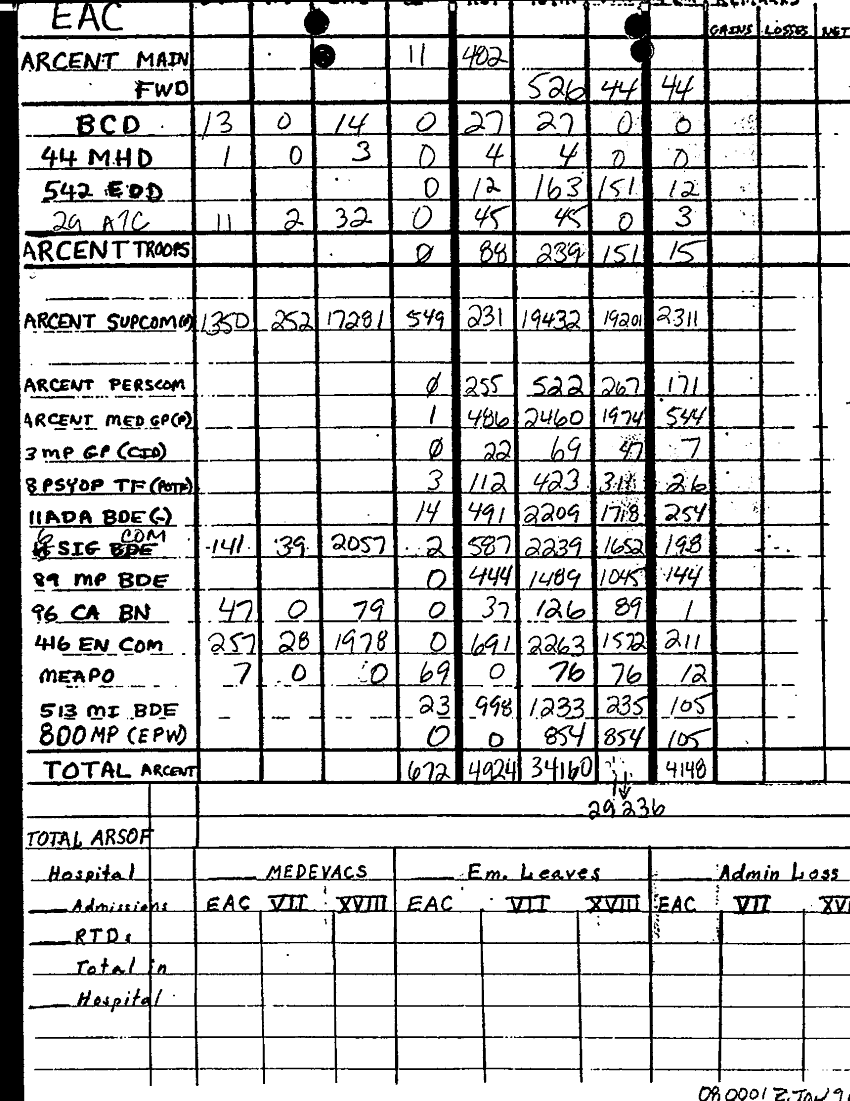 EAC
GAINS LOSSES NET
ARCENT MAIN 11 482
FWD 526 44 44
BCD 13 0 14 0 27 27 0 0
44 MHD 1 0 3 0 4 4 0 0
542 EDD 0 12 163 151 12
29 ATC 11 2 32 0 45 45 0 3
ARCENT TROOPS 0 88 239 151 15
ARCENT SUPCOM(P) 1350 252 17281 549 231 19432 19201 2311
ARCENT PERSCOM 0 255 522 267 171
ARCENT MED GP(P) 1 486 2460 1974 544
3 MP GP (CID) 0 22 69 47 7
8 PSYOP TF (POTF) 3 112 423 311 26
11 ADA BDE (-) 14 491 2209 1718 254
6 SIG COM 141 39 2057 2 587 2239 1652 198
89 MP BDE 0 444 1489 1045 144
96 CA BN 47 0 79 0 37 126 89 1
416 EN COM 257 28 1978 0 691 2263 1572 211
MEAPO 7 0 0 69 0 76 76 12
513 MI BDE 23 998 1233 235 105
800 MP (EPW) 0 0 854 854 105
TOTAL ARCENT 672 4924 34160 4148
29236
TOTAL ARSOF
Hospital MEDEVACS Em. Leaves Admin Loss
Admissions EAC VII XVIII EAC VII XVIII EAC VII
RTDs
Total in
Hospital
080001Z JAN 9